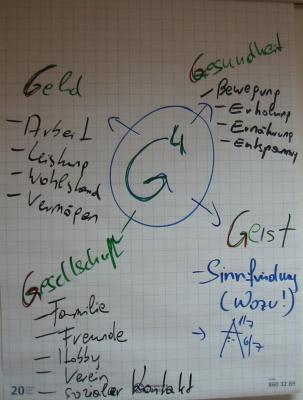 Geld
- Arbeit
- Leistung
- Wohlstand
- Vermögen
Gesundheit
- Bewegung
- Erholung
- Ernährung
- Entspannung
G4
Gesellschaft
- Familie
- Freunde
- Hobby
- Verein
- sozialer Kontakt
Geist
- Sinnfindung
(Wozu!)
1/7
6/7
20